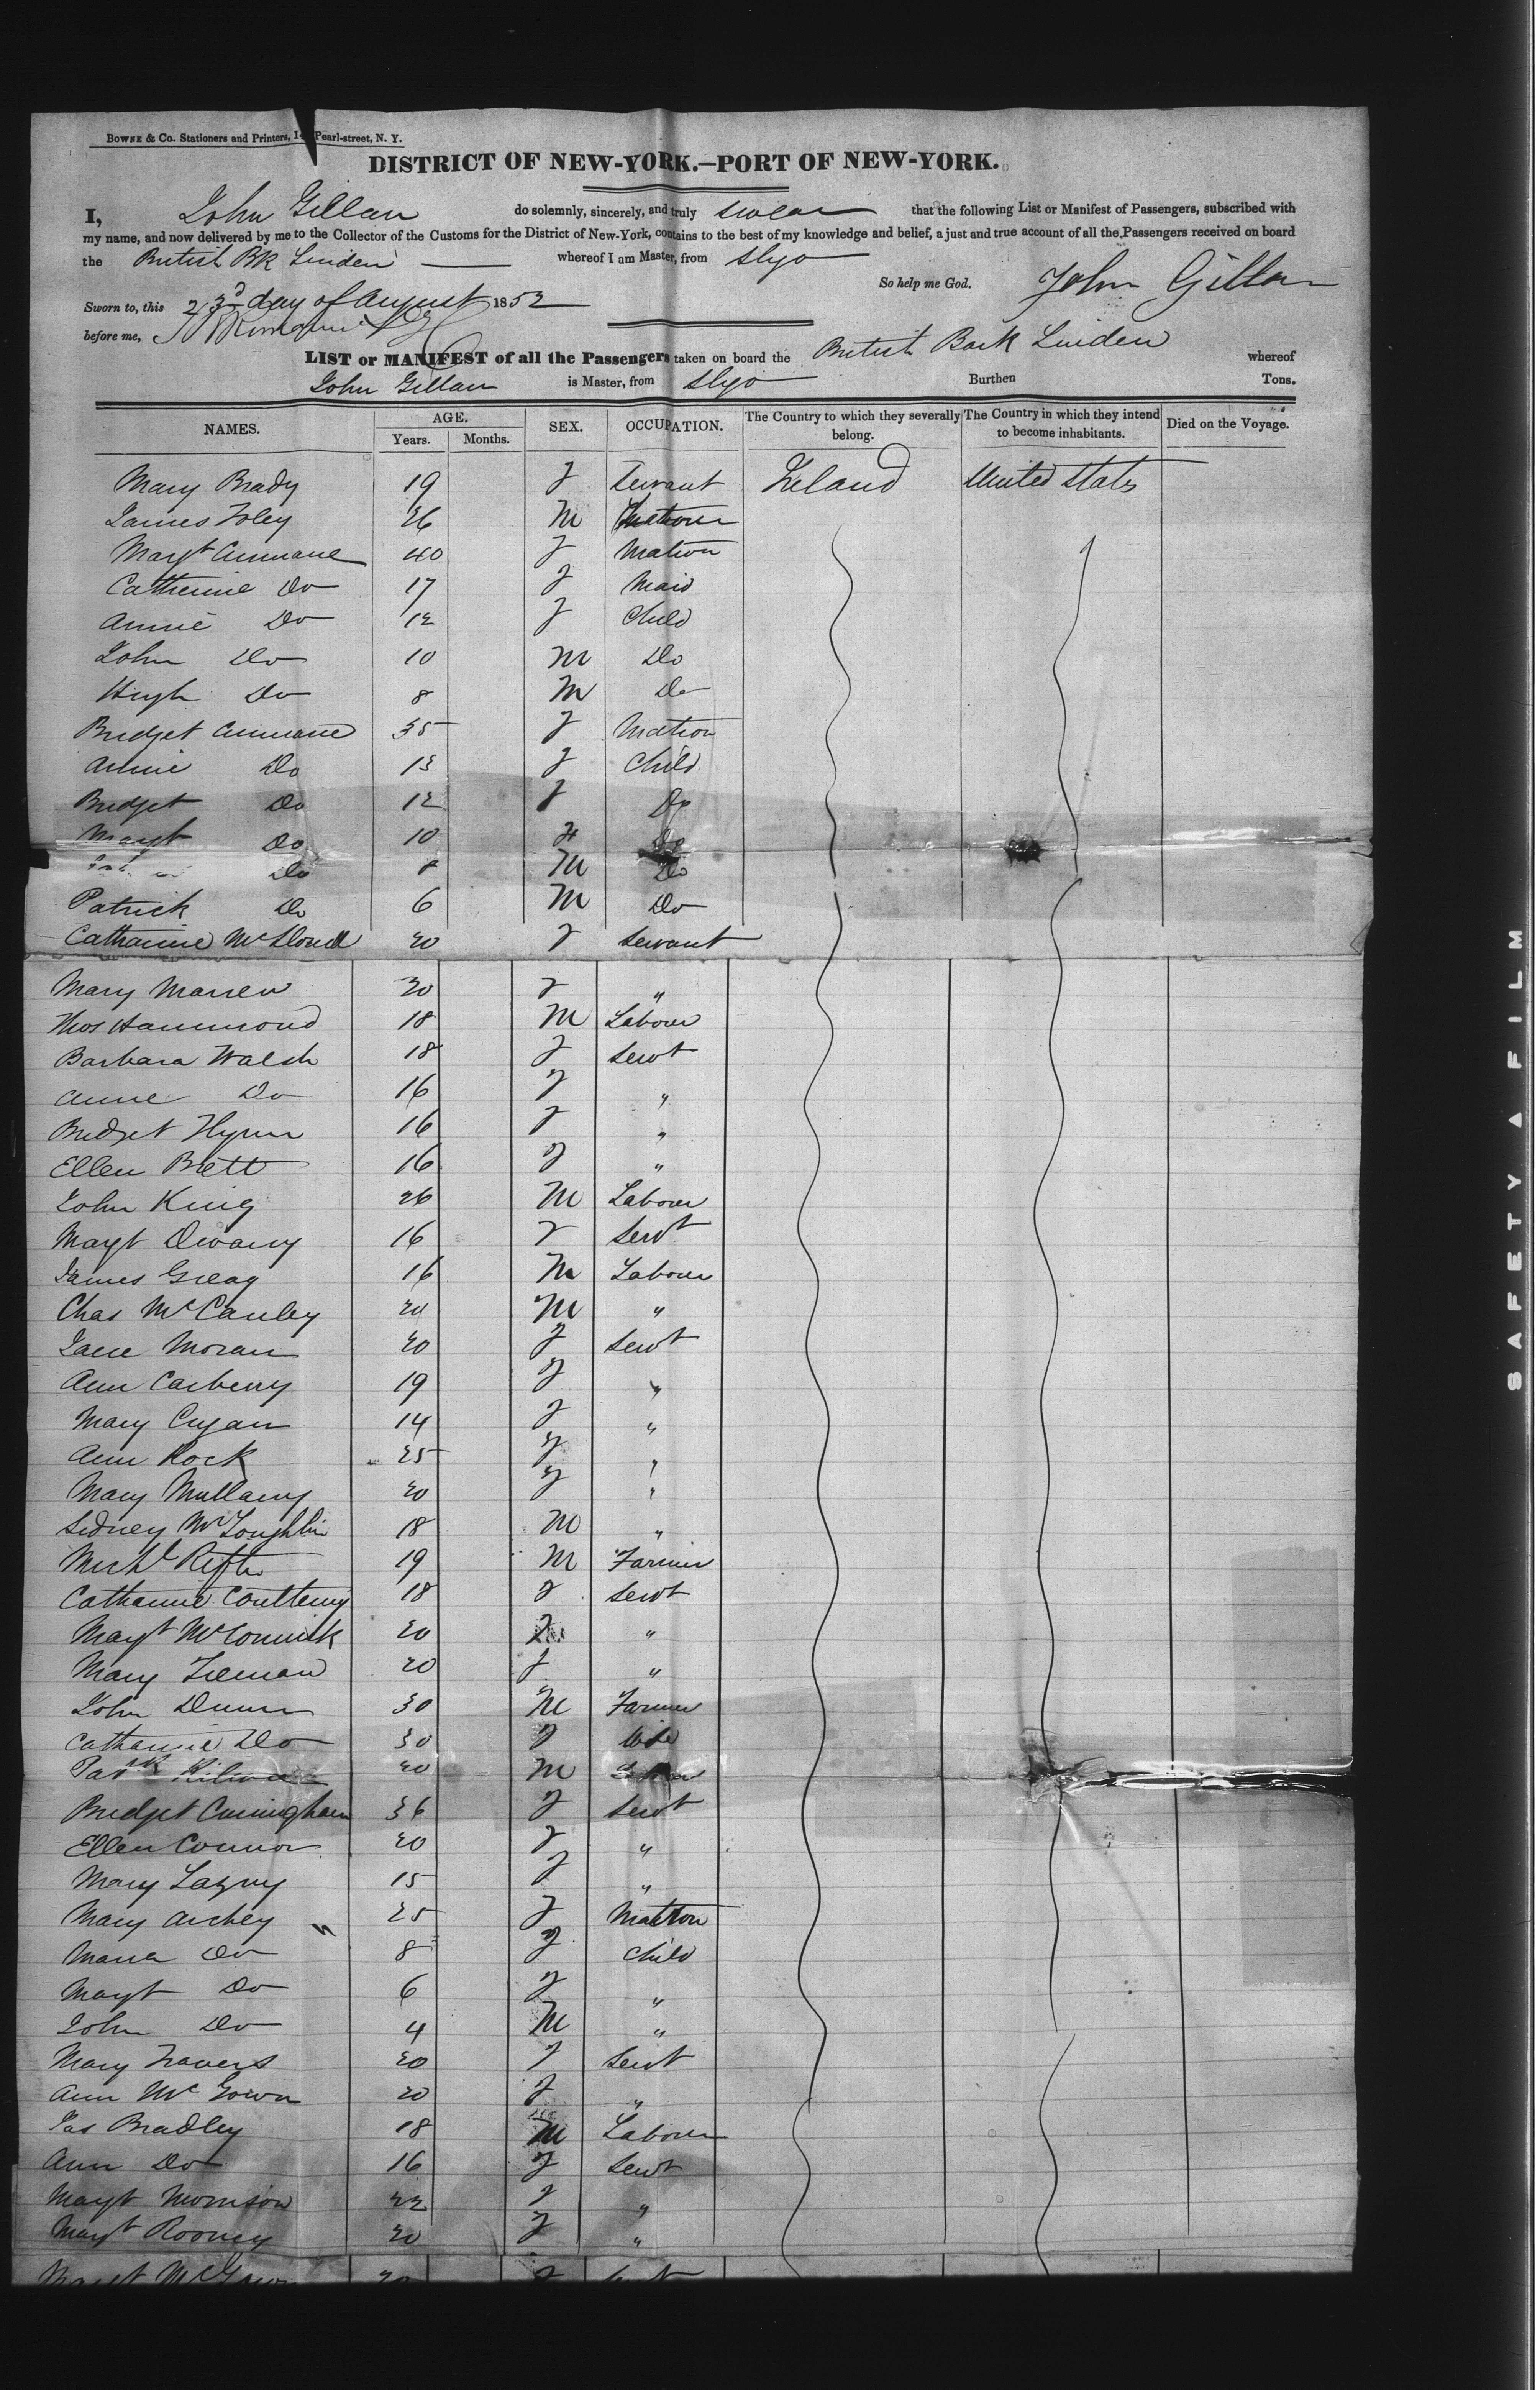 BOWNE & Co. Stationers and Printers, 14 Pearl-street, N. Y.
DISTRICT OF NEW-YORK.—PORT OF NEW-YORK.
I, John Gillan do solemnly, sincerely, and truly swear that the following List or Manifest of Passengers, subscribed with
my name, and now delivered by me to the Collector of the Customs for the District of New-York, contains to the best of my knowledge and belief, a just and true account of all the Passengers received on board
the British Bk Linden whereof I am Master, from Sligo
So help me God. John Gillan
Sworn to, this 23d day of August 1852
before me,
LIST or MANIFEST of all the Passengers taken on board the British Bark Linden whereof
John Gillan is Master, from Sligo Burthen Tons.
NAMES. AGE. Years. Months. SEX. OCCUPATION. The Country to which they severally belong. The Country in which they intend to become inhabitants. Died on the Voyage.
Mary Brady 19 F Servant Ireland United States
James Foley 26 M
Margt 40 F Matron
Catherine Do 17 F Maid
Annie Do 12 F Child
John Do 10 M Do
Hugh Do 8 M Do
Bridget 35 F Matron
Annie Do 13 F Child
Bridget Do 12 F Do
Margt Do 10 F Do
Do 8 M Do
Patrick Do 6 M Do
Catharine 20 F Servant
Mary Marren 20 F "
Thos Hammond 18 M Labourer
Barbara Walsh 18 F Servt
Anne Do 16 F "
Bridget Flynn 16 F "
Ellen Brett 16 F "
John King 26 M Labourer
Margt Devany 16 F Servt
James Greag 16 M Labourer
Chas McCauley 20 M "
Jane Moran 20 F Servt
Ann Carberry 19 F "
Mary Cryan 14 F "
Ann Rock 25 F "
Mary Mullany 20 F "
Sidney McLoughlin 18 M "
Michl 19 M Farmer
Catharine 18 F Servt
Margt McCormick 20 F "
Mary 20 F "
John Dunn 30 M Farmer
Catharine Do 30 F Wife
Patk 20 M
Bridget Cuningham 36 F Servt
Ellen Connor 20 F "
Mary 15 F "
Mary Archey 25 F Matron
Maria Do 8 F Child
Margt Do 6 F "
John Do 4 M "
Mary Travers 20 F Servt
Ann McGowan 20 F "
Jas Bradley 18 M Labourer
Ann Do 16 F Servt
Margt Morrison 22 F "
Margt Rooney 20 F "
SAFETY A FILM